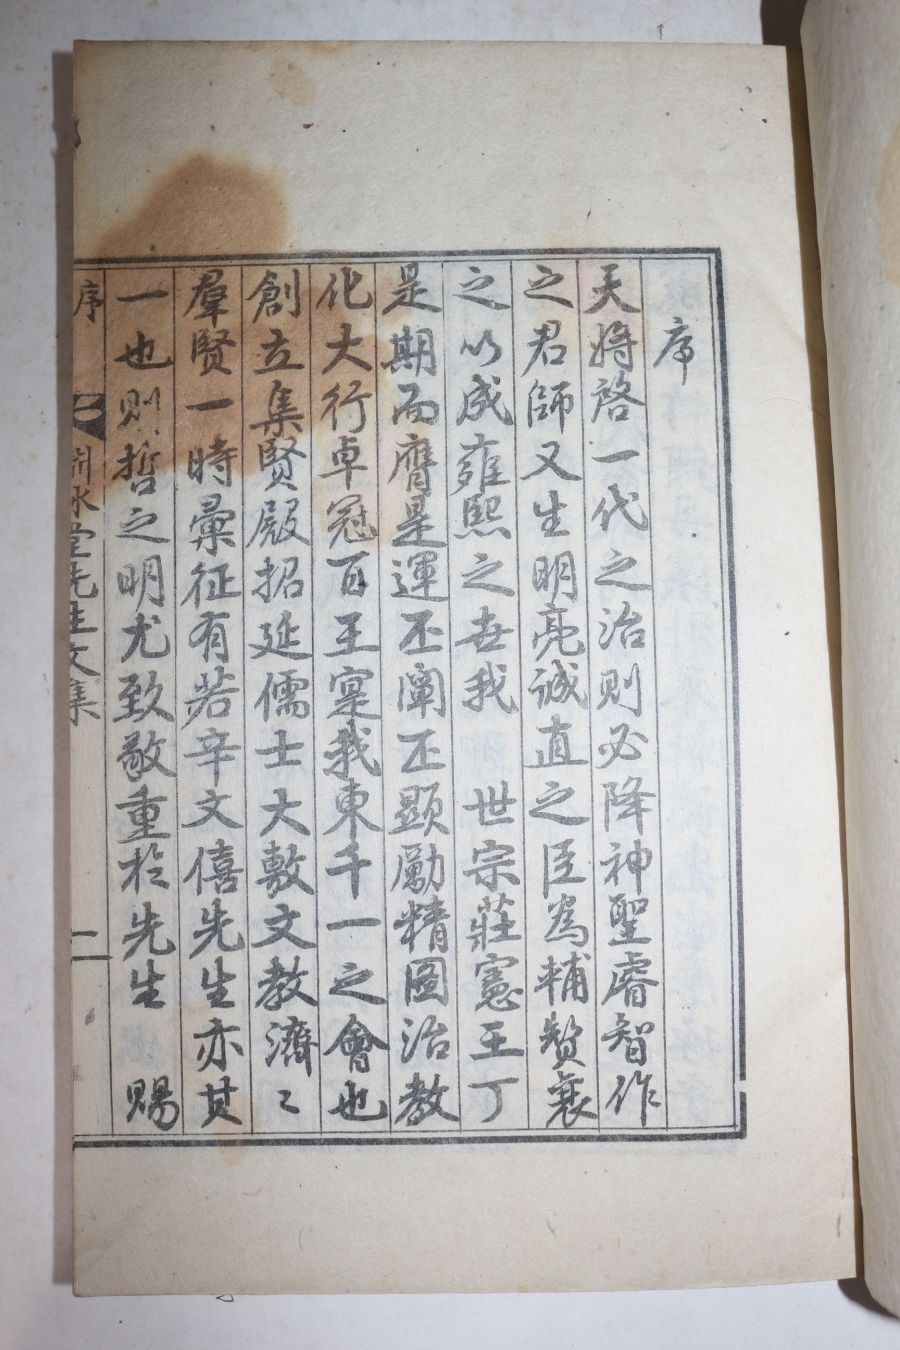 序
天將啓一代之治則必降神聖睿智作
之君師又生明亮誠直之臣爲輔贊襄
之以成雍熙之世我 世宗莊憲王丁
是期而膺是運丕闡丕顯勵精圖治教
化大行卓冠百王寔我東千一之會也
創立集賢殿招延儒士大敷文教濟〻
羣賢一時彙征有若辛文僖先生亦其
一也則哲之明尤致敬重於先生 賜
序 冰堂先生文集 一